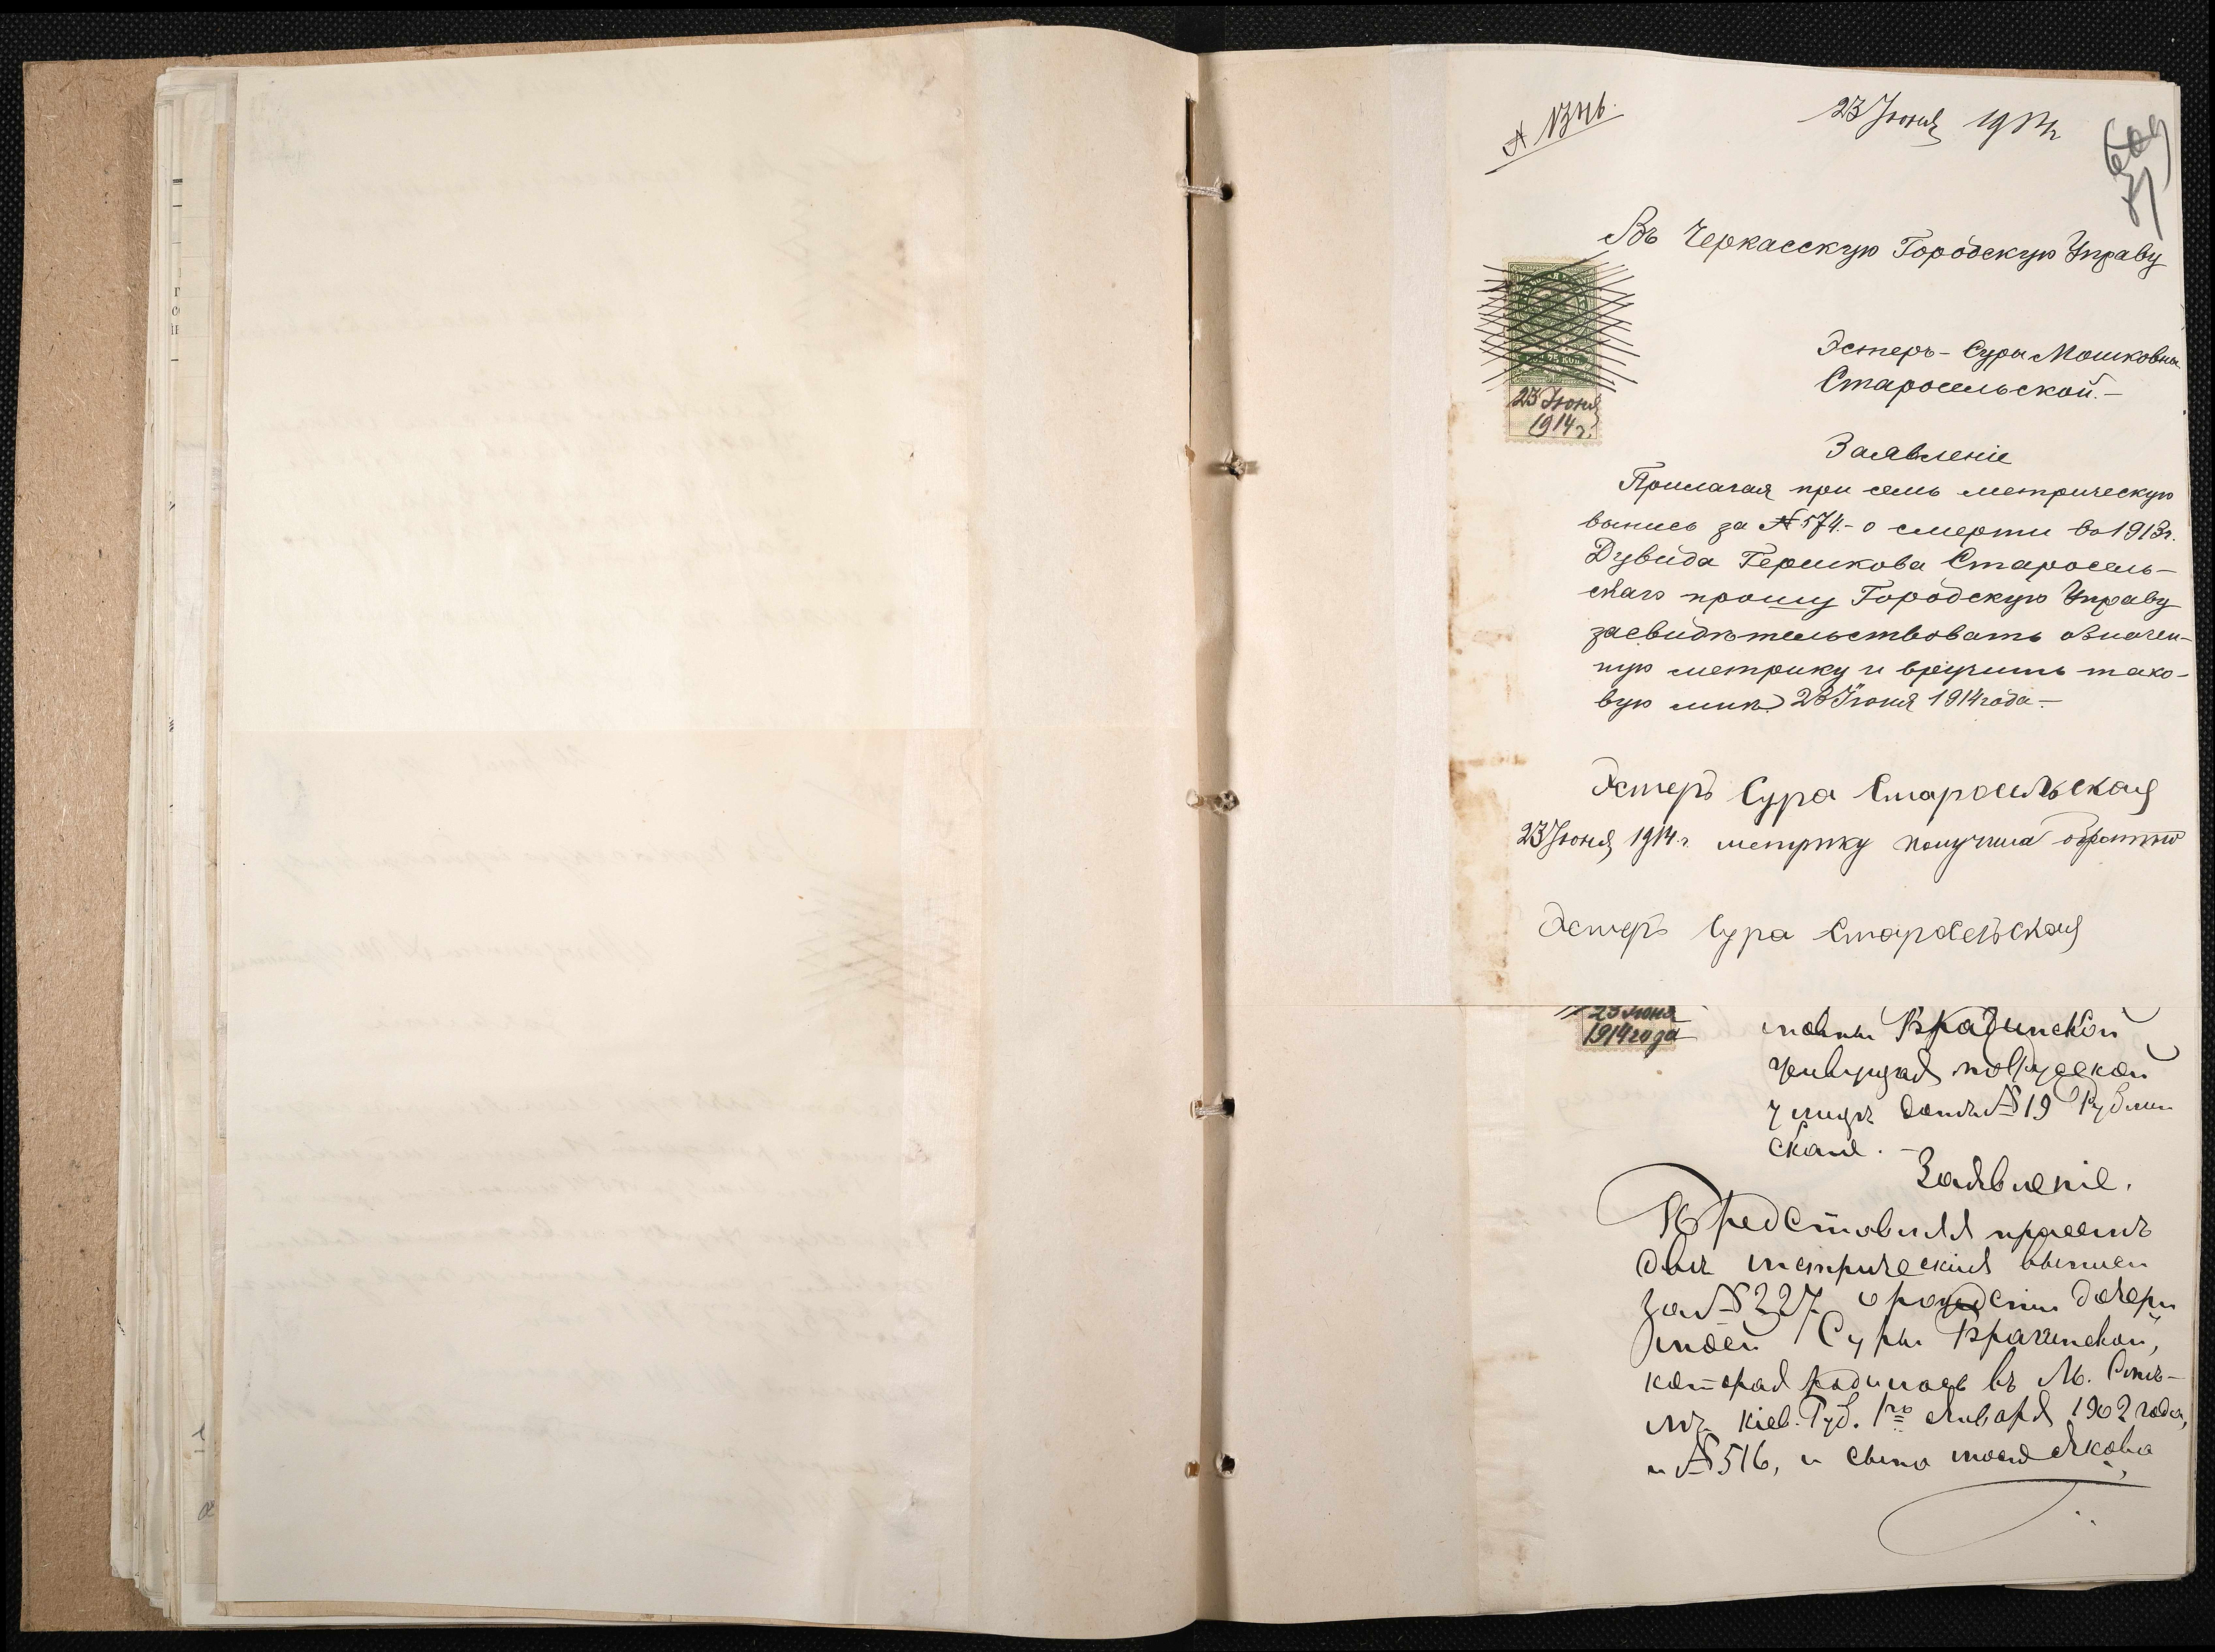 23 Июня 1914 г.
Въ Черкасскую Городскую Управу
75 КОП.
23 Июня
1914 г.
Эстеръ-Суры Мошковны
Старосельской.—
Заявленіе
Прилагая при семъ метрическую
выпись за № 574.- о смерти въ 1913 г.
Дувида Гершкова Старосель-
скаго прошу Городскую Управу
засвидѣтельствовать означен-
ную метрику и вручить тако-
вую мнѣ. 23 Июня 1914 года.—
Эстеръ Сура Старосельская
23 Июня 1914 г. метрику получила обратно
Эстеръ Сура Старосельская
23 Июня
1914 года
улицѣ домъ № 19
Заявленіе.
Представляя
двѣ метрическия выписи
за № 227 о рождении дочери
моей Суры
которая родилась въ М.
Кіев. Губ. 1го Января 1902 года,
и № 516, и сына моего Якова